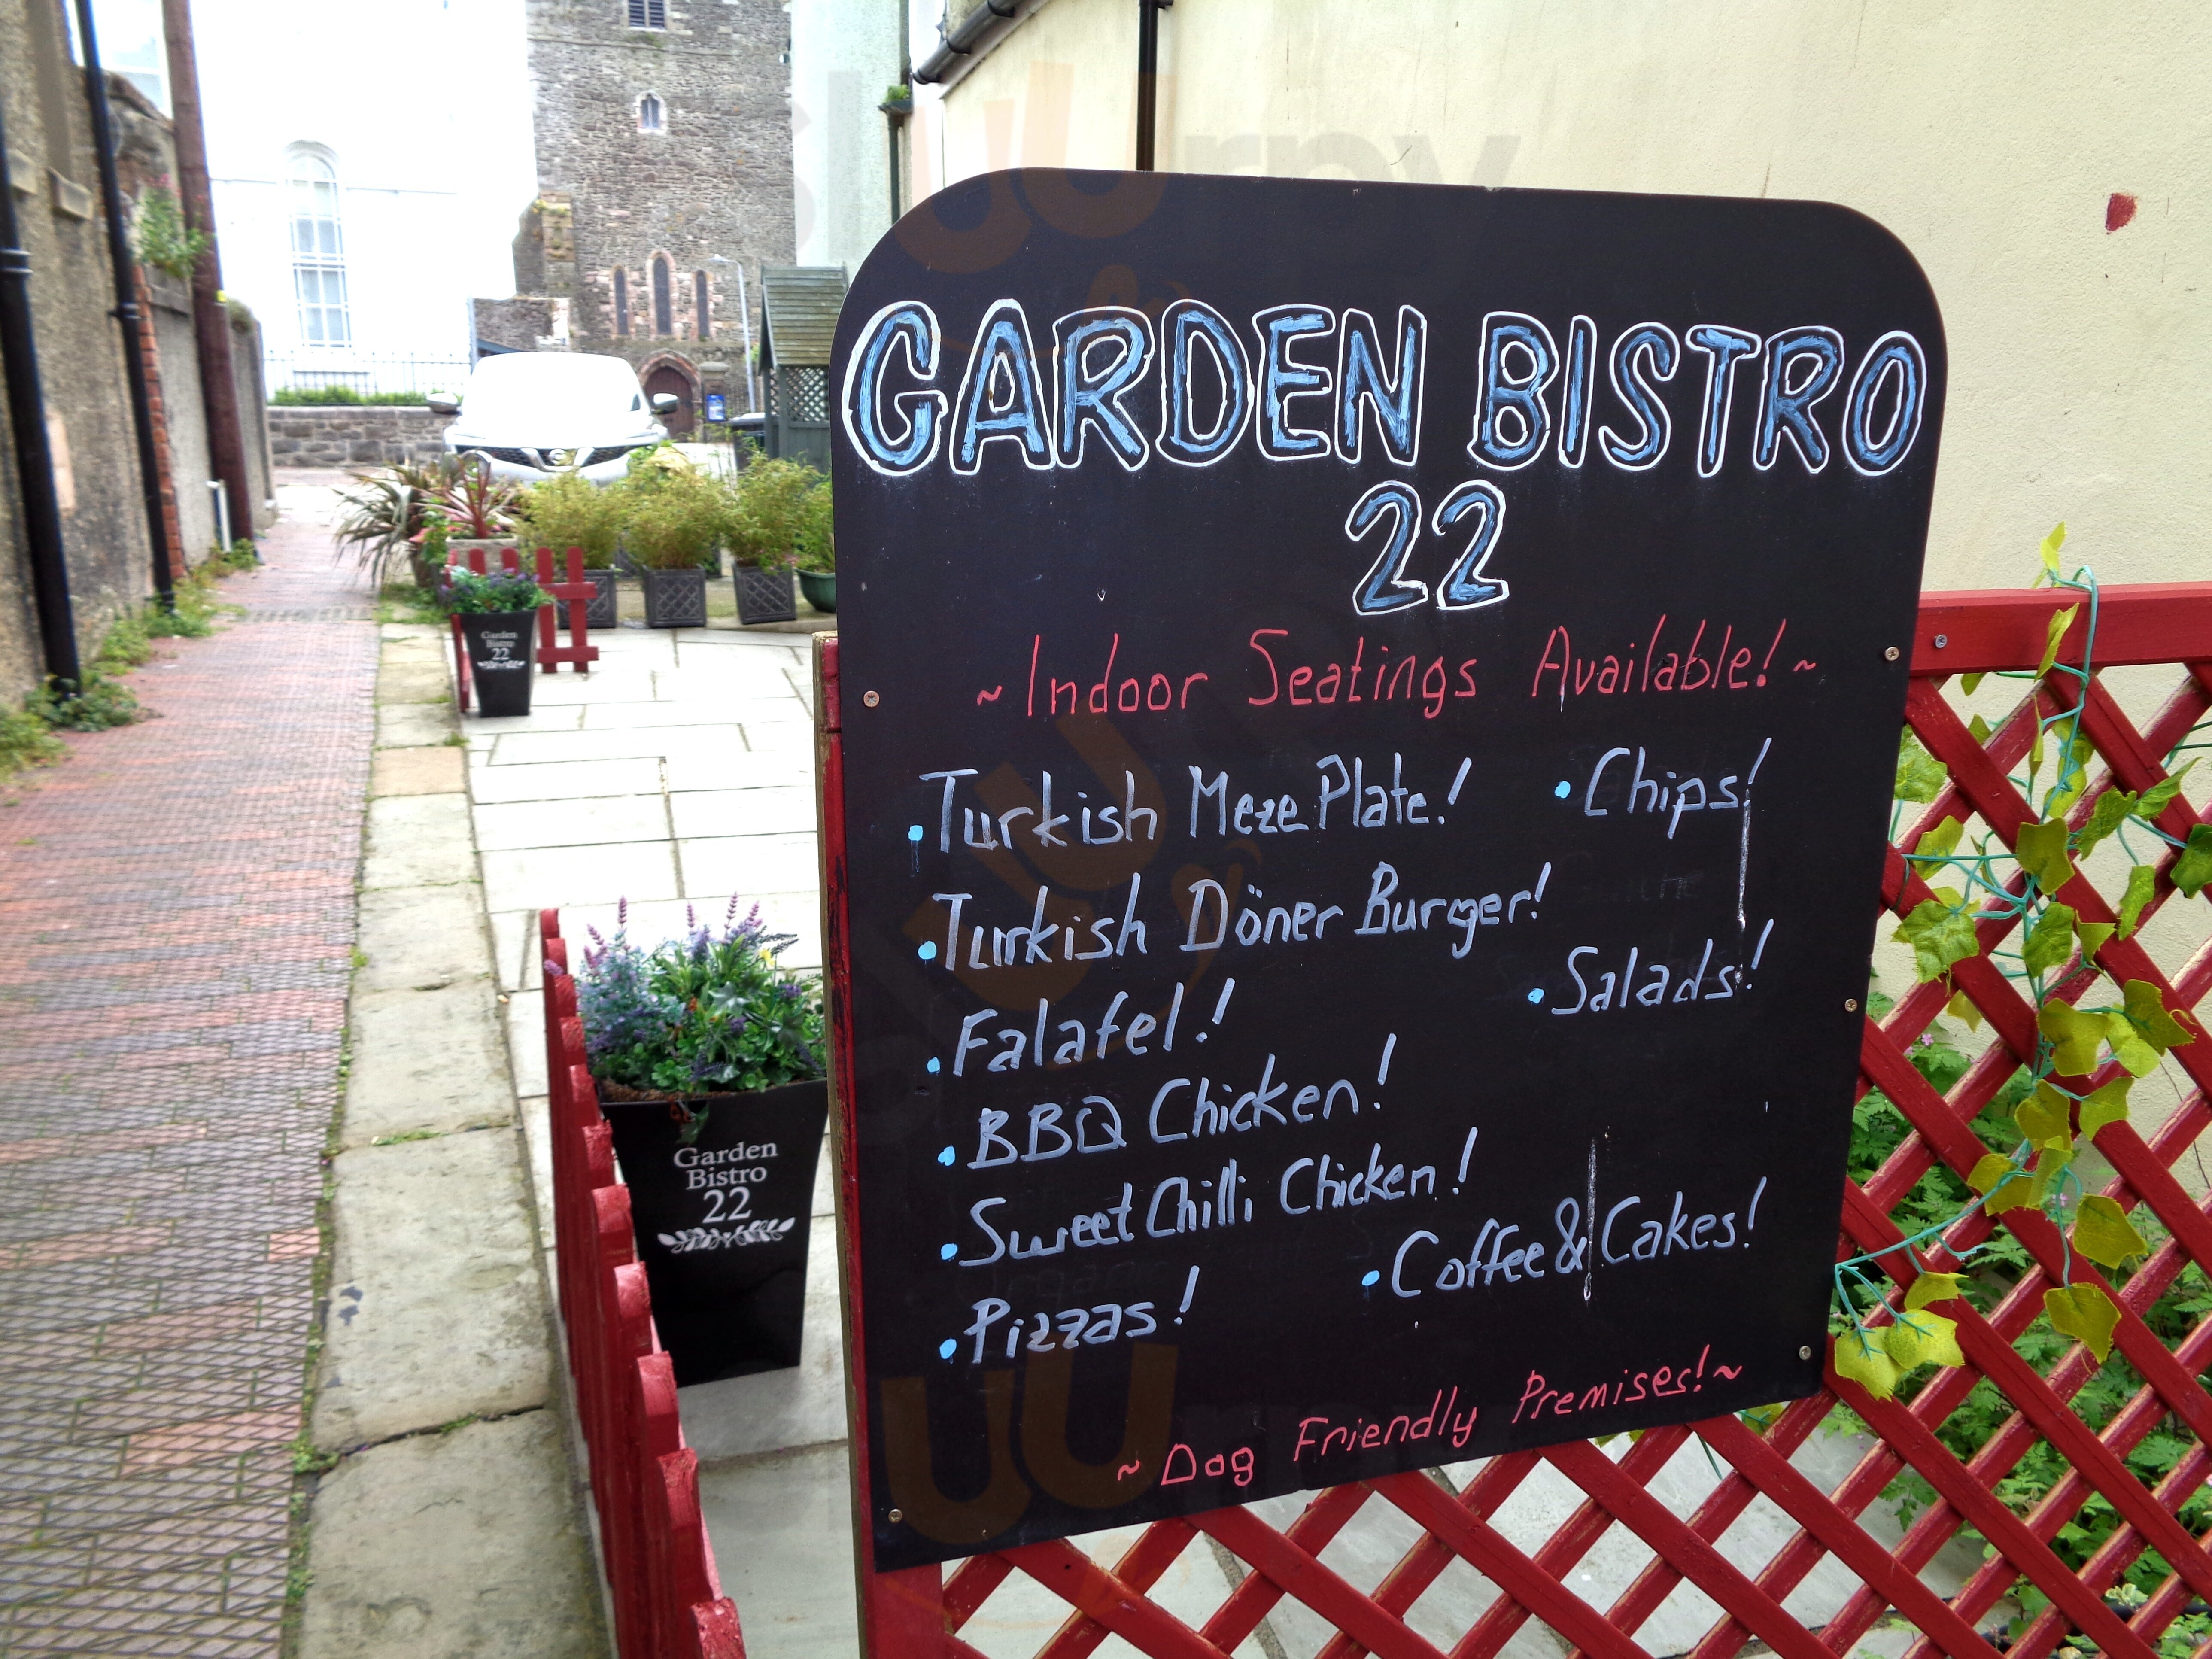 sluurpy
GARDEN BISTRO
22
~ Indoor Seatings Available! ~
• Turkish Meze Plate!
• Chips!
• Turkish Döner Burger!
• Salads!
• Falafel!
• BBQ Chicken!
• Sweet Chilli Chicken!
• Coffee & Cakes!
• Pizzas!
~ Dog Friendly Premises! ~
Garden
Bistro
22
Garden
Bistro
22